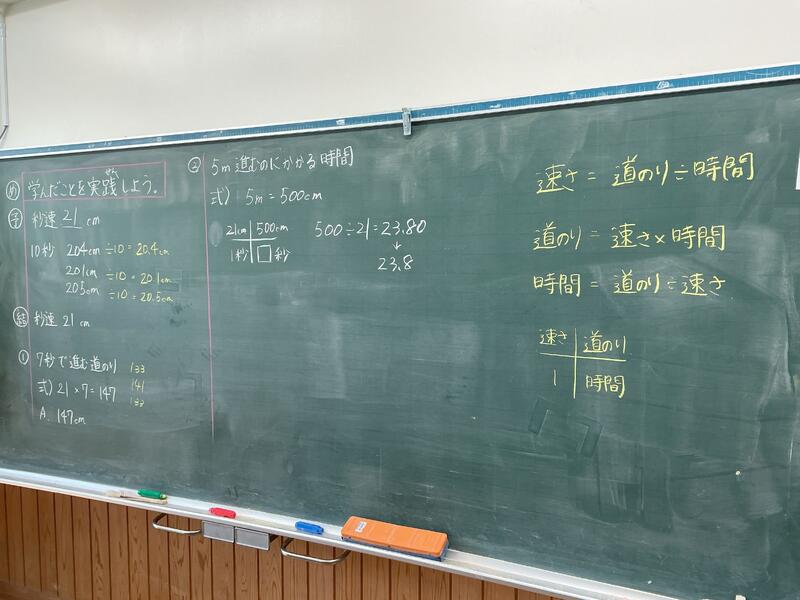 め 学んだことを実践しよう。
予 秒速 21 cm
10秒 204cm ÷10=20.4cm
201cm ÷10=20.1cm
205cm ÷10=20.5cm
結 秒速 21 cm
① 7秒で進む道のり 133
式) 21×7=147 141
A. 147cm 132
② 5m進むのにかかる時間
式) 5m=500cm
21cm 500cm
1秒 □秒
500÷21=23.80
↓
23.8
速さ = 道のり÷時間
道のり = 速さ×時間
時間 = 道のり÷速さ
速さ 道のり
1 時間